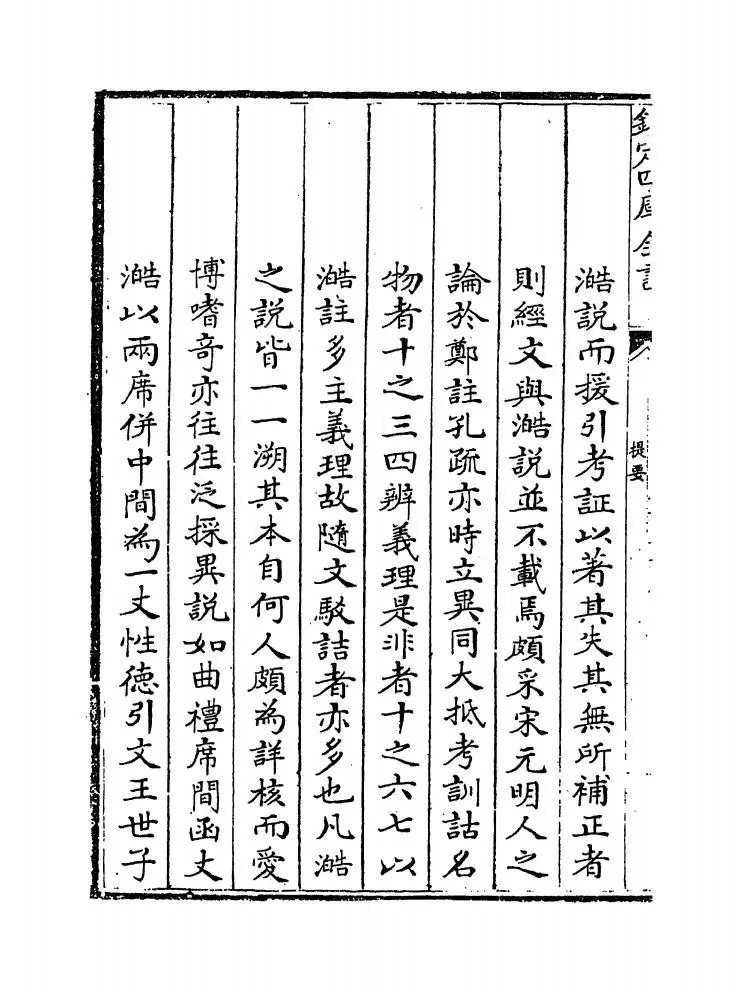 欽定四庫全書
提要
澔說而援引考証以著其失其無所補正者
則經文與澔說並不載焉頗采宋元明人之
論於鄭註孔疏亦時立異同大抵考訓詁名
物者十之三四辨義理是非者十之六七以
澔註多主義理故隨文駁詰者亦多也凡澔
之說皆一一溯其本自何人頗為詳核而愛
博嗜竒亦往往泛採異說如曲禮席間函丈
澔以兩席併中間為一丈性德引文王世子